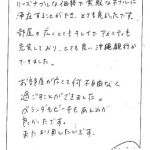 リーズナブルな価格で素敵なホテルに
滞在することができ、とても良かったです。
部屋も広くてとてもキレイでアメニティも
充実しており、とても良い沖縄旅行が
できました。
お部屋が広くて何不自由なく
過ごすことができました。
ベランダもビーチもあんのが
良かったです。
またお願いしたいです。